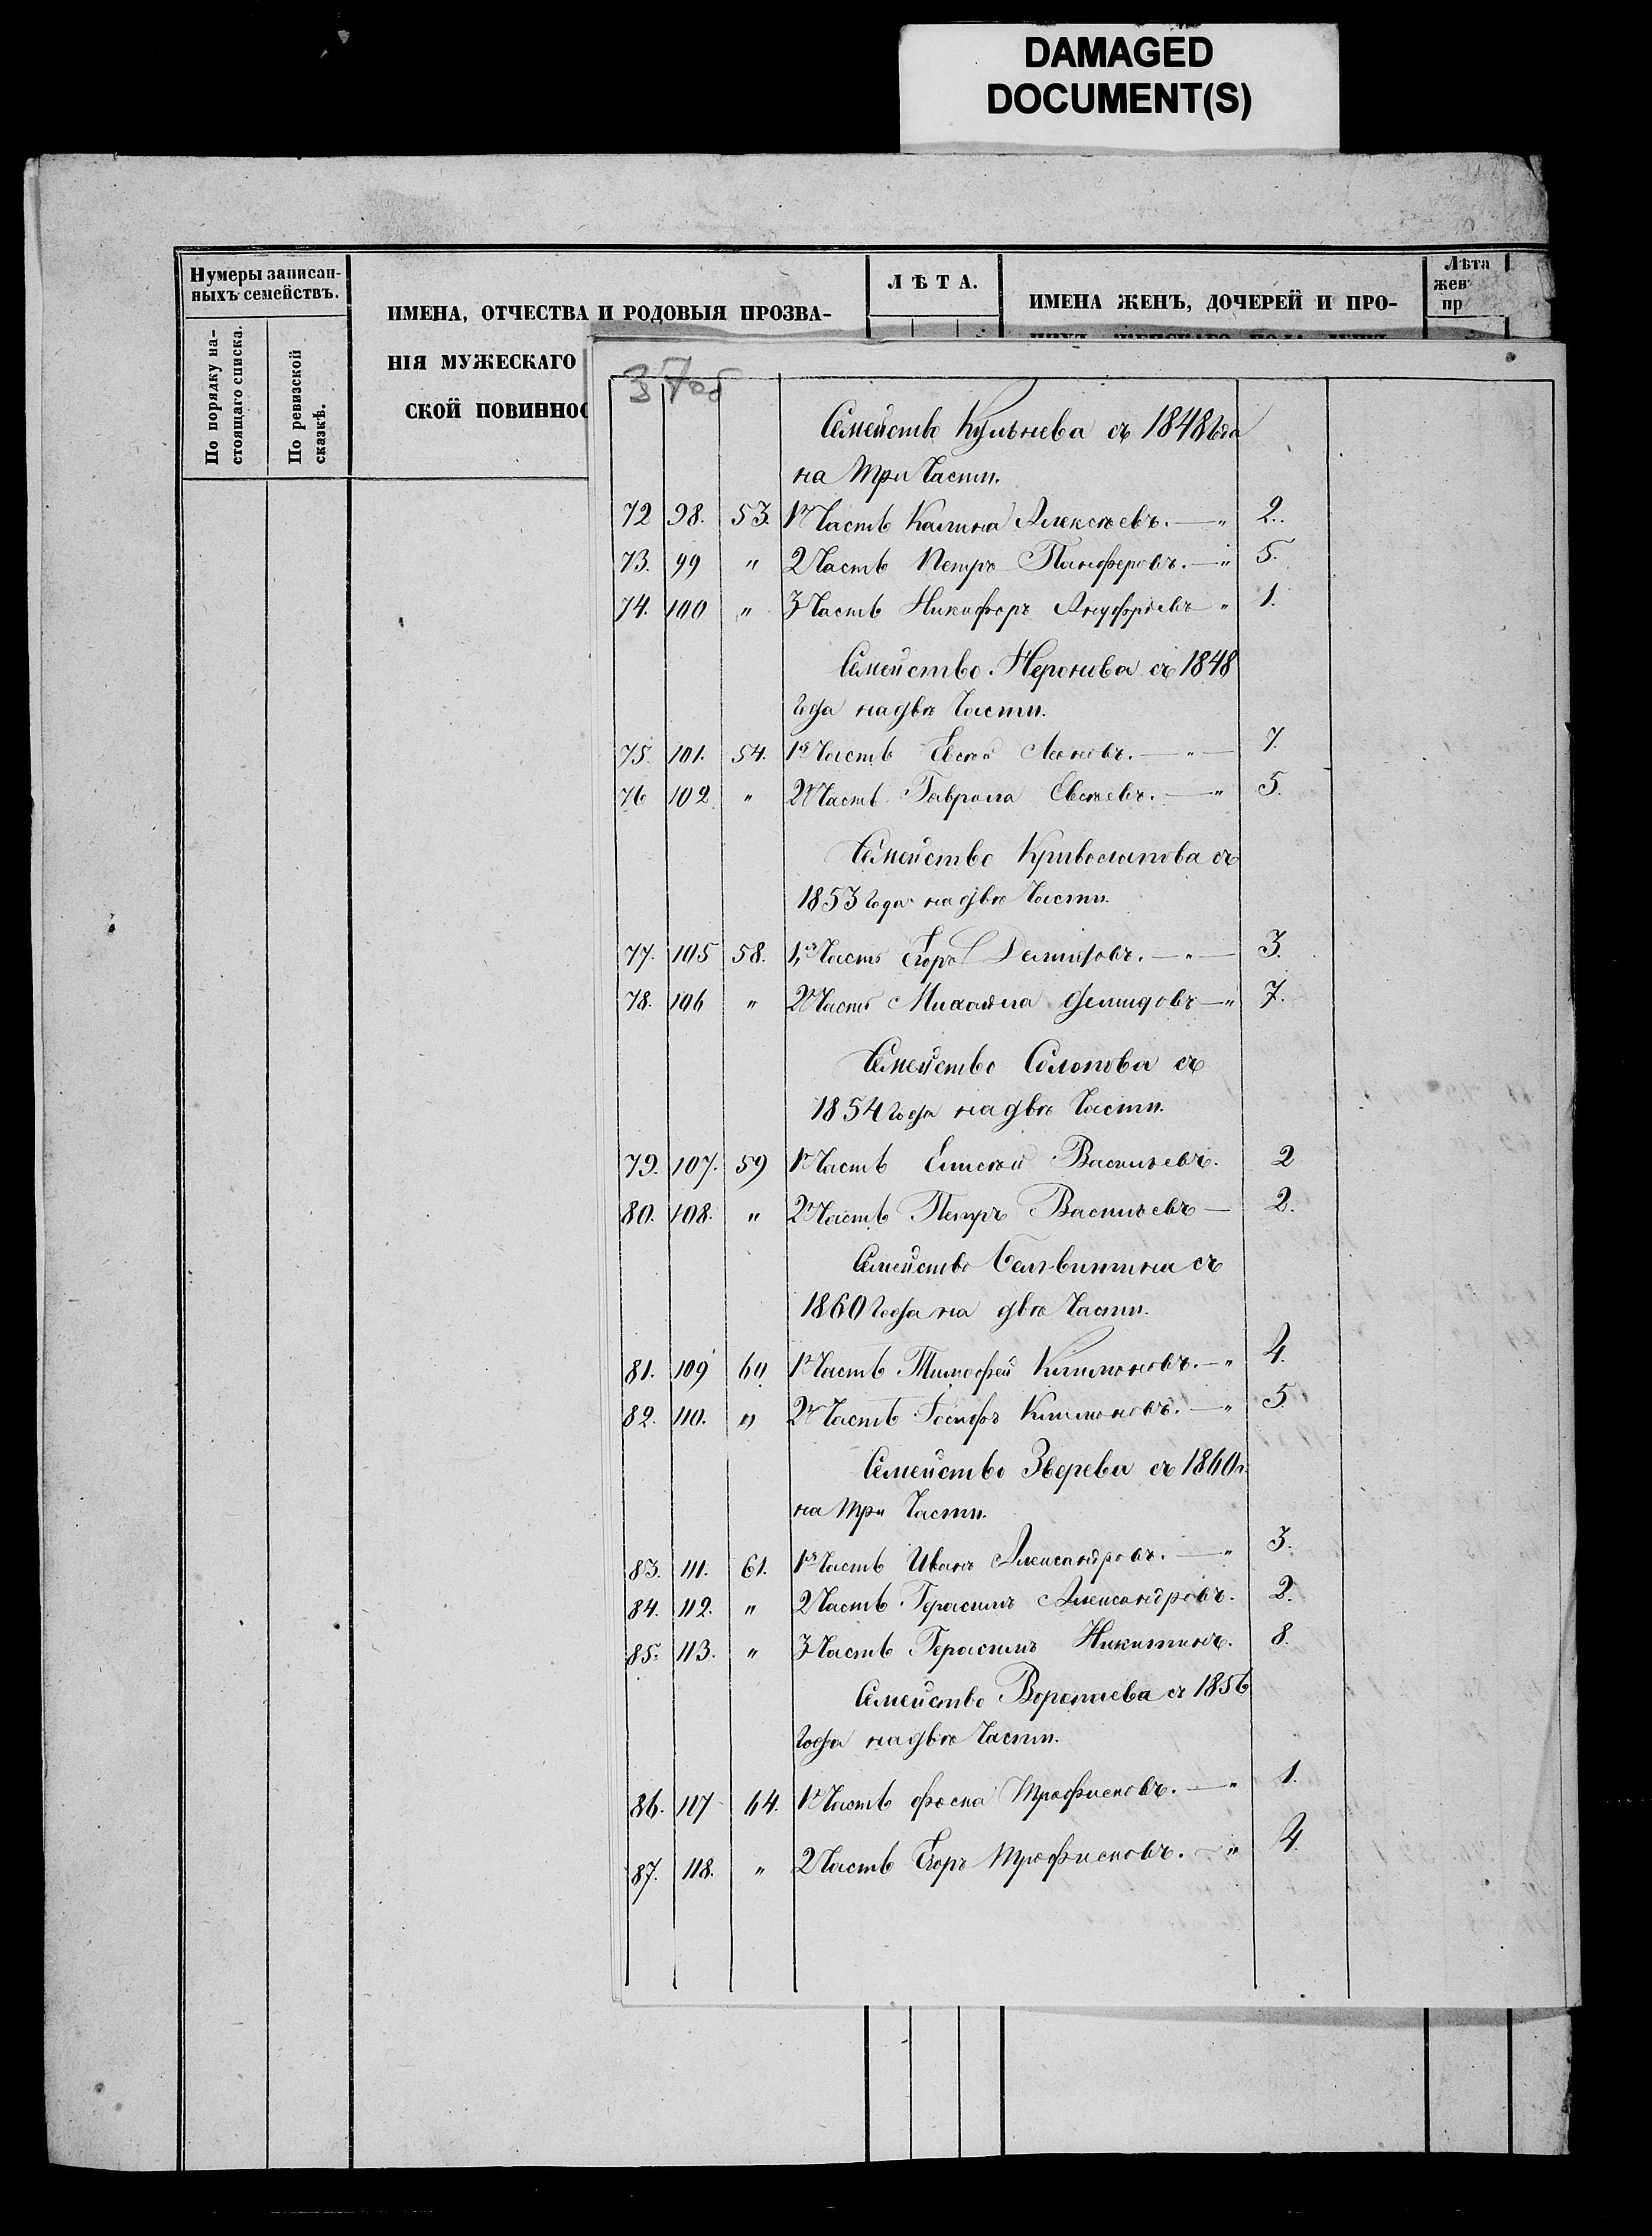 DAMAGED
DOCUMENT(S)
Нумеры записан-
ныхъ семействъ.
По порядку на-
стоящаго списка.
По ревизской
сказкѣ.
ИМЕНА, ОТЧЕСТВА И РОДОВЫЯ ПРОЗВА-
НІЯ МУЖЕСКАГО
СКОЙ ПОВИННОС
ЛѢТА.
ИМЕНА ЖЕНЪ, ДОЧЕРЕЙ И ПРО-
Лѣта
жен
пр
37об
Семейство Кульнева съ 1848 года
на три Части.
72 98. 53. 1я Часть Калина Алексѣевъ. — " 2.
73. 99 " 2 Часть Петръ Панферовъ. — " 5.
74. 100 " 3 Часть Никифоръ Ануфріевъ " 1.
Семейство Неронова съ 1848
года на двѣ Части.
75. 101. 54. 1я Часть Евсѣй Леоновъ. — " — 7.
76 102 " 2я Часть Гаврила Евсѣевъ. — " 5.
Семейство Кривошапова съ
1853 года на двѣ Части.
77. 105 58. 1я Часть Егоръ Демидовъ. — " — 3.
78. 106 " 2я Часть Михайла Демидовъ — " 7.
Семейство Солопова съ
1854 года на двѣ Части.
79. 107. 59 1я Часть Елисѣй Васильевъ. 2
80. 108. " 2я Часть Петръ Васильевъ — 2.
Семейство съ
1860 года на двѣ Части.
81. 109 60 1я Часть Тимофей Климоновъ. — " 4.
82. 110. " 2я Часть Іосифъ Климоновъ. — " 5.
Семейство Зверева съ 1860 г.
на три Части.
83. 111. 61. 1я Часть Иванъ Александровъ. — " 3.
84. 112. " 2 Часть Герасимъ Александровъ. 2.
85. 113. " 3 Часть Герасимъ Никитинъ. 8.
Семейство Воропаева съ 1856
года на двѣ Части.
86. 117 64. 1я Часть Фока Трофимовъ. — " 1.
87. 118. " 2 Часть Егоръ Трофимовъ. — " 4.